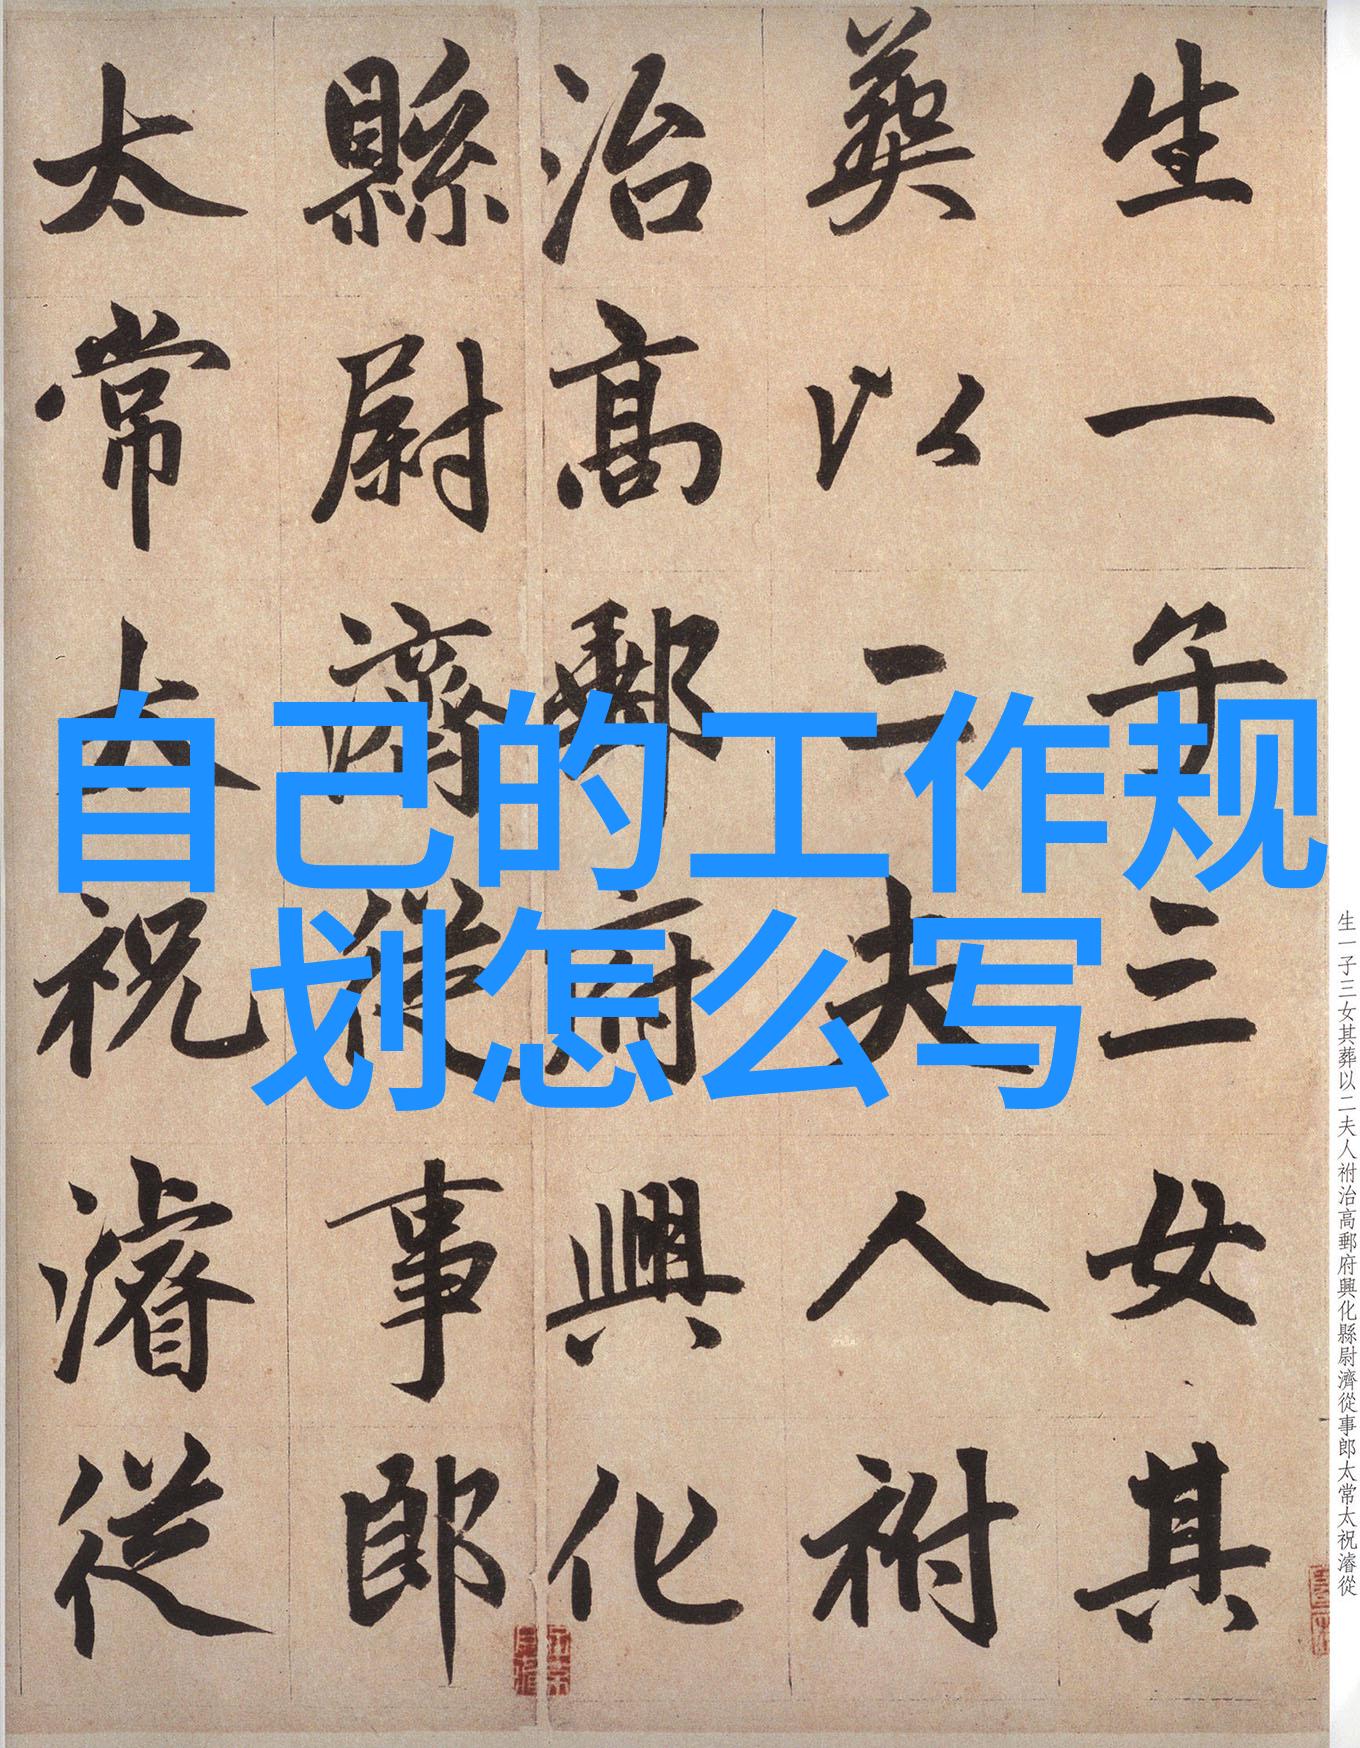 自己的工作规
划怎么写
生一子三女其
葬以二夫人祔
治高郵府興化
縣尉濟從事郎
太常太祝濬從
生一子三女其葬以二夫人祔治高郵府興化縣尉濟從事郎太常太祝濬從